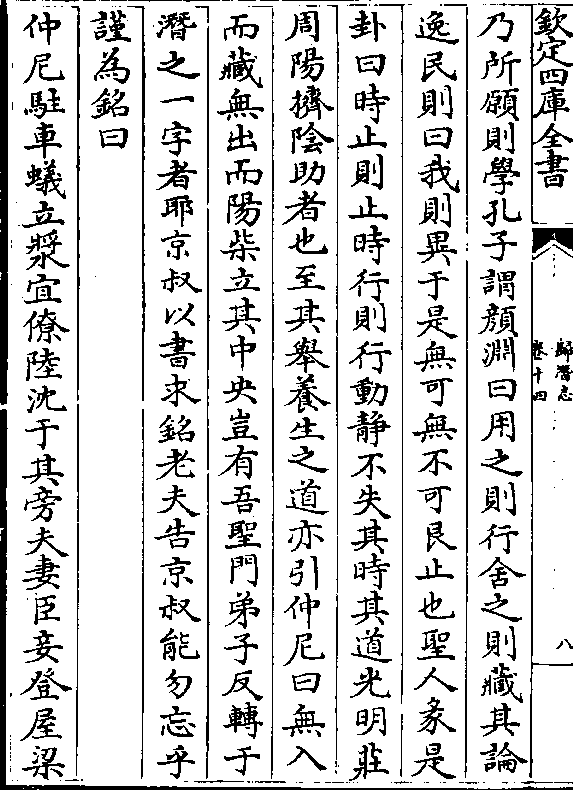 欽定四庫全書
歸潛志
卷十四
八
乃所願則學孔子謂顔淵曰用之則行舍之則藏其論
逸民則曰我則異于是無可無不可艮止也聖人彖是
卦曰時止則止時行則行動静不失其時其道光明莊
周陽擠陰助者也至其舉養生之道亦引仲尼曰無入
而藏無出而陽柴立其中央豈有吾聖門弟子反轉于
潛之一字者耶京叔以書求銘老夫告京叔能勿忘乎
謹為銘曰
仲尼駐車蟻立漿宜僚陸沈于其旁夫妻臣妾登屋梁